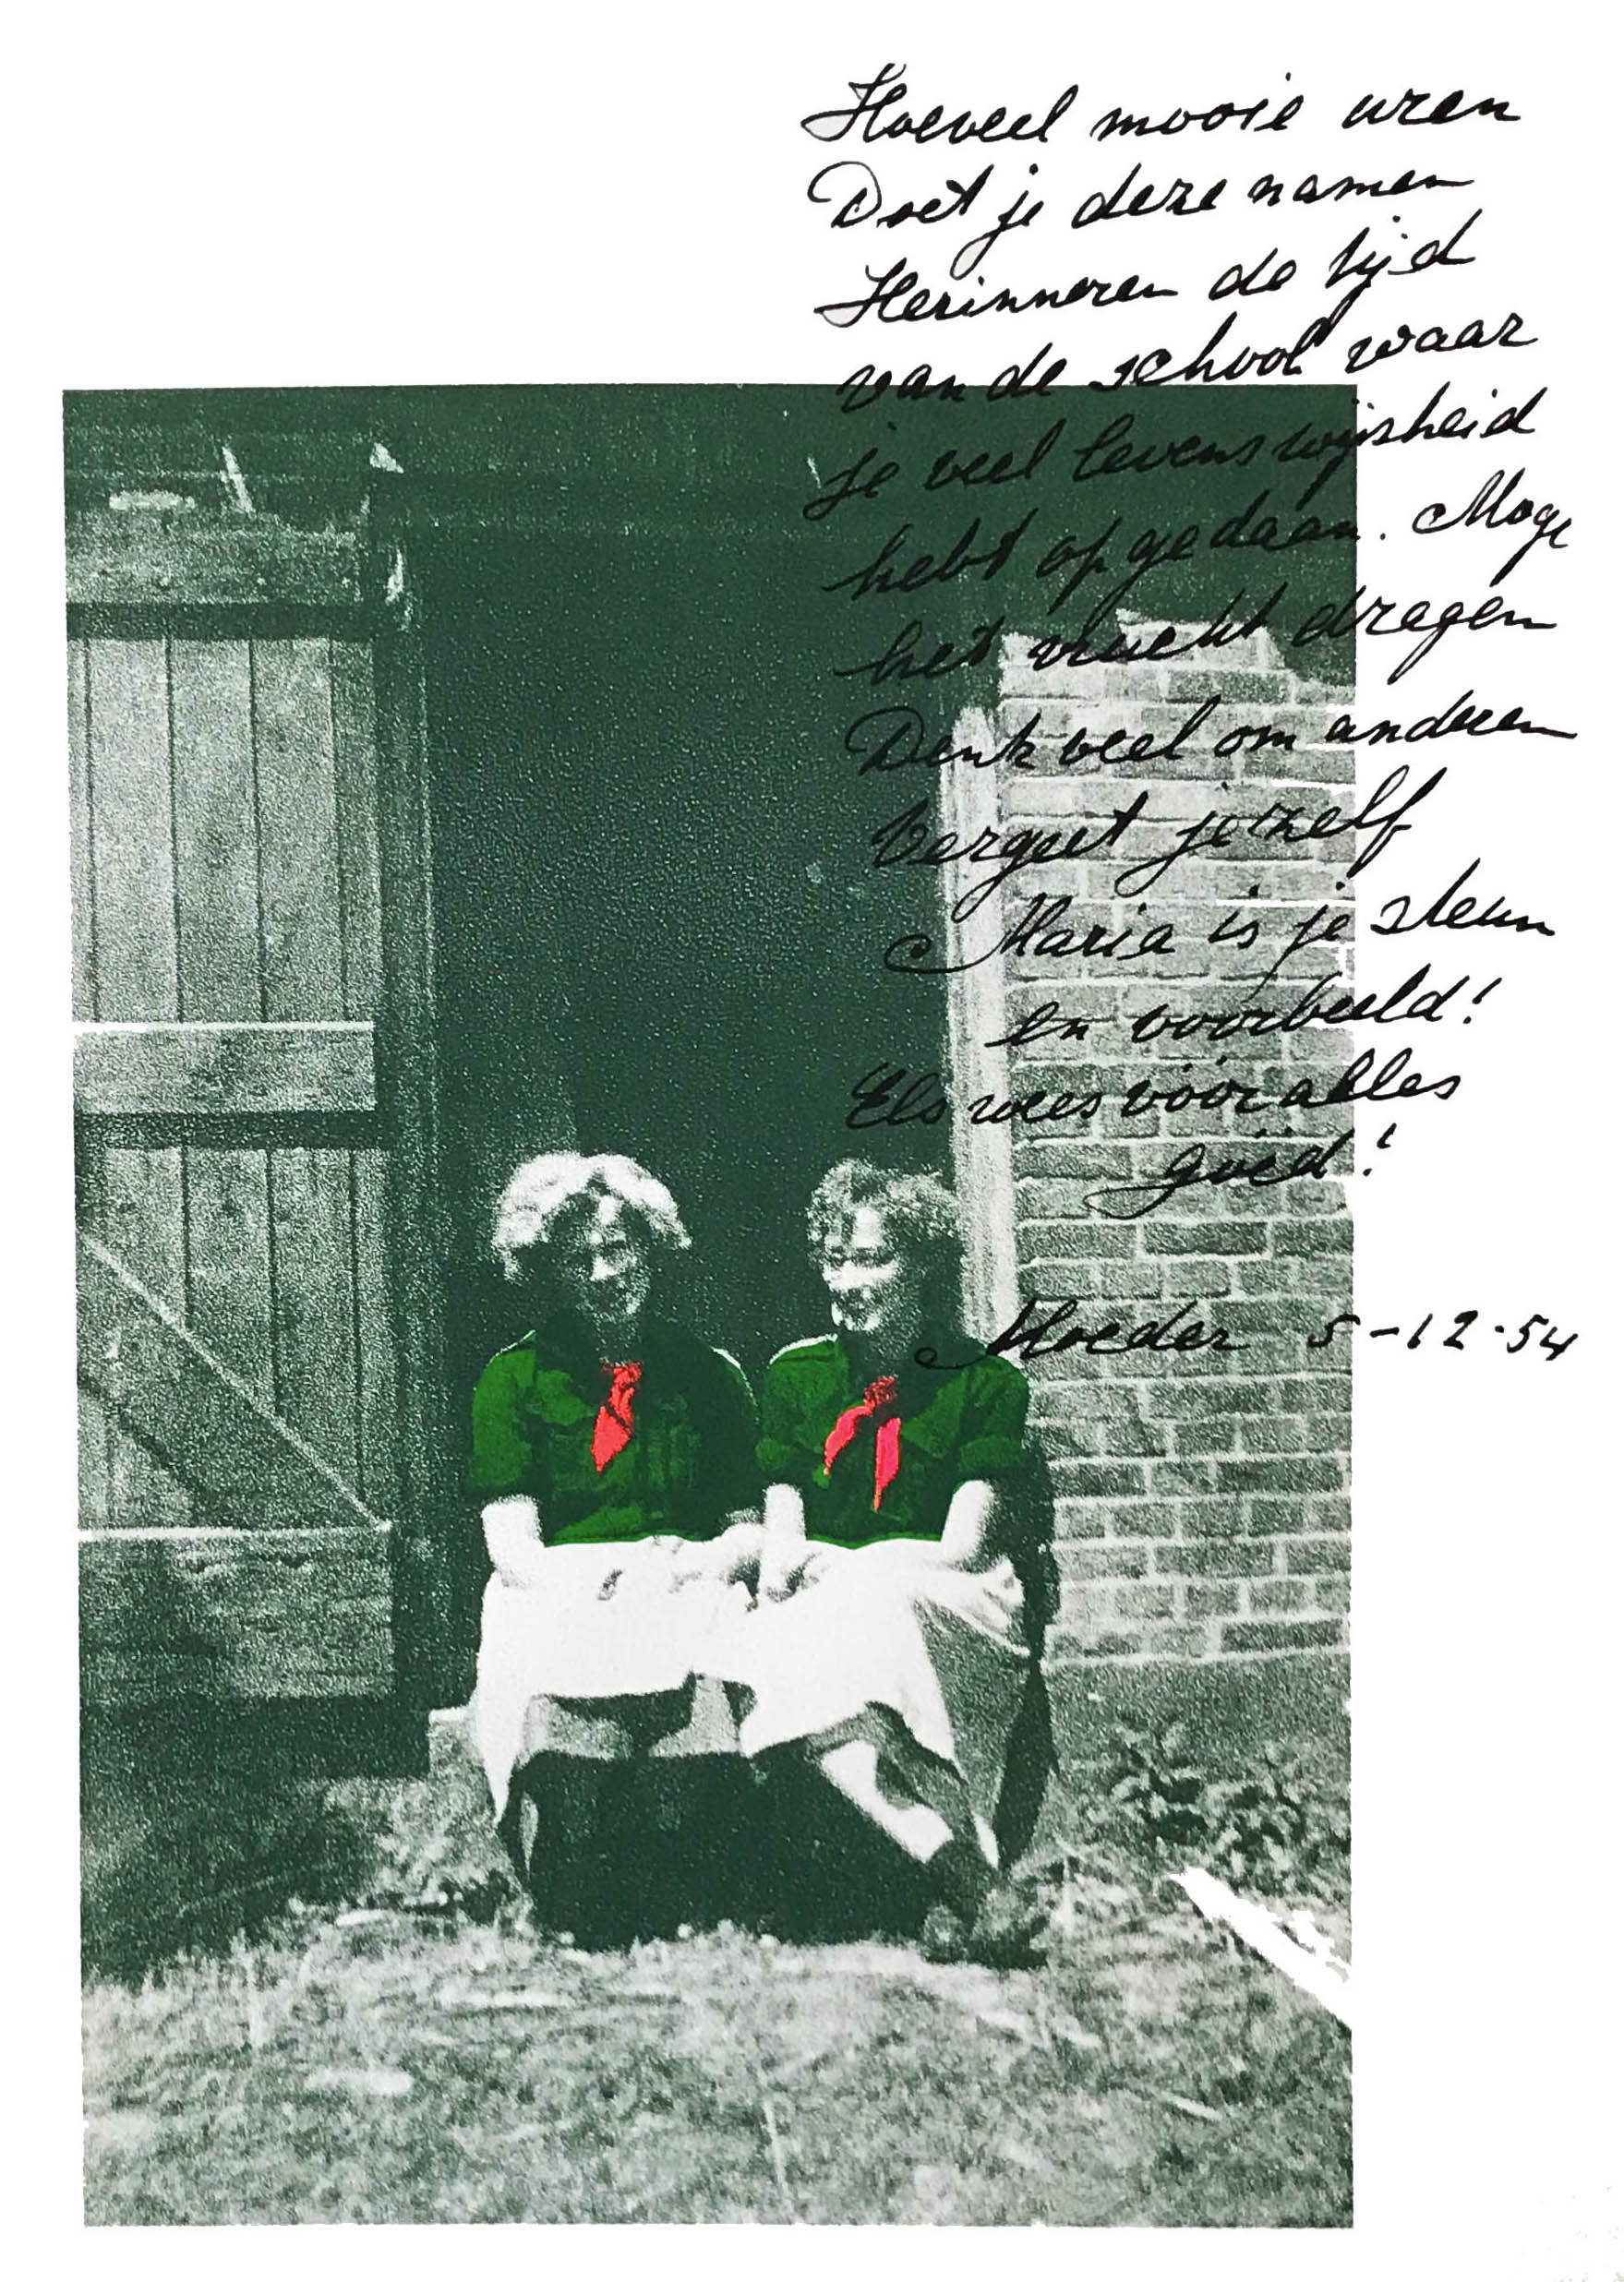 Hoeveel mooie uren
Doet je deze namen
Herinneren de tijd
van de school waar
je veel levenswijsheid
hebt opgedaan. Moge
het vrucht dragen
Denk veel om anderen
Vergeet jezelf
Maria is je steun
en voorbeeld!
Els wees vóór alles
goed!
Moeder 5-12-54